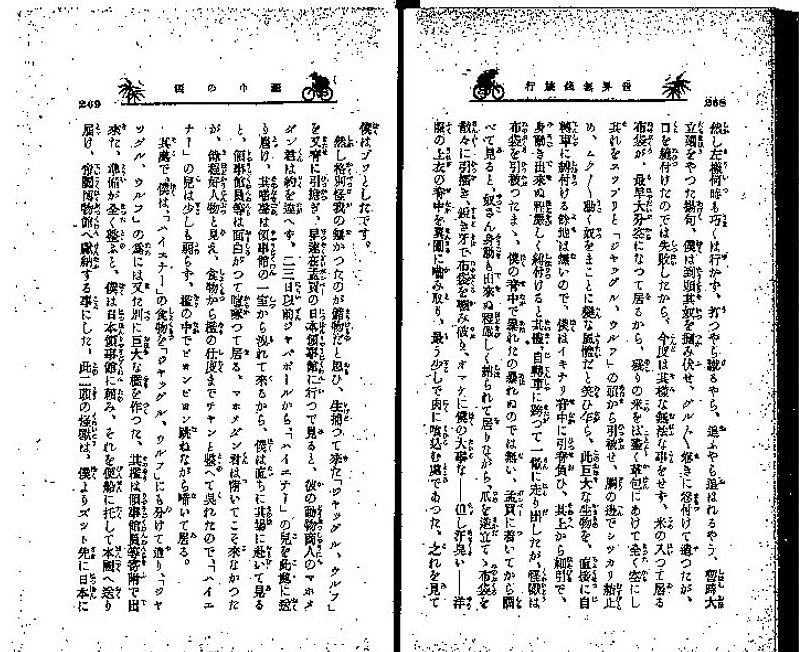 世界無錢旅行
268
然し左樣何時も巧くは行かず、打つやら蹴るやら、追ふやら追はれるやう、暫時大
立𢌞をやつた揚句、僕は到頭其奴を摑み伏せ、グル〳〵卷きに卷付けて遣つたが、
口を縫付けたのでは失敗したから、今度は其樣な無法な事をせず、米の入つて居る
布袋が、最早大分空になつて居るから、殘りの米をば盡く革包にあけて全く空にし
其れをスツプリと「ジヤッグル、ウルフ」の頭から引被せ、胴の邊でシツカリ結止
め、ムク〳〵動く奴をまことに變な風體だと笑ひ乍ら、此巨大な生物を、直接に自
轉車に結付ける餘地は無いので、僕はイキナリ背中に引背負ひ、其上から細引で、
身動き出來ぬ程嚴しく縛付けると其儘、自轉車に跨つて一散に走り出したが、怪獸は
布袋を引被つたまゝ、僕の背中で暴れたの暴れぬのでは無い、孟買に着いてから調
べて見ると、奴さん身動も出來ぬ程嚴しく縛られて居りながら、爪を逆立てゝ布袋を
散々に引搔き、銳き牙で布袋を嚙み破り、オマケに僕の大事な——但し汗臭い——洋
服の上衣の背中を眞圓に嚙み取り、最う少しで肉に喰込む處であつた、之れを見て
僕の巾着
269
僕はゾツとしたです。
然し格別怪我の無かつたのが儲物だと思ひ、生捕つて來た「ジヤッグル、ウルフ」
を又背に引擔ぎ、早速在孟買の日本領事館に行つて見ると、僕の動物商人のマホメ
ダン君は約を違へず、二三日以前ジヤバポールから「ハイエナー」の兒を此處に送
り屆け、其嚙聲は領事館の一室から洩れて來るから、僕は直ちに其場に赴いて見る
と、領事館員等は面白がつて喧騷つて居る。マホメダン君は惜いてこそ來なかつた
が、餘程好人物と見え、食物から檻の仕度までチヤンと整へて吳れたので、「ハイエ
ナー」の兒は少しも弱らず、檻の中でピヨンピヨン跳ねながら嘯いて居る。
其處で、僕は、「ハイエナー」の食物を「ジヤッグル、ウルフ」にも分けて遣り、「ジヤ
ッグル、ウルフ」の爲には又た別に巨大な檻を作つた、其檻は領事館員等寄附で出
來た、準備が全く整ふと、僕は日本領事館に賴み、それを便船に托して本國へ送り
屆け、帝國博物館へ獻納する事にした、此二頭の怪獸は、僕よりズツト先に日本に